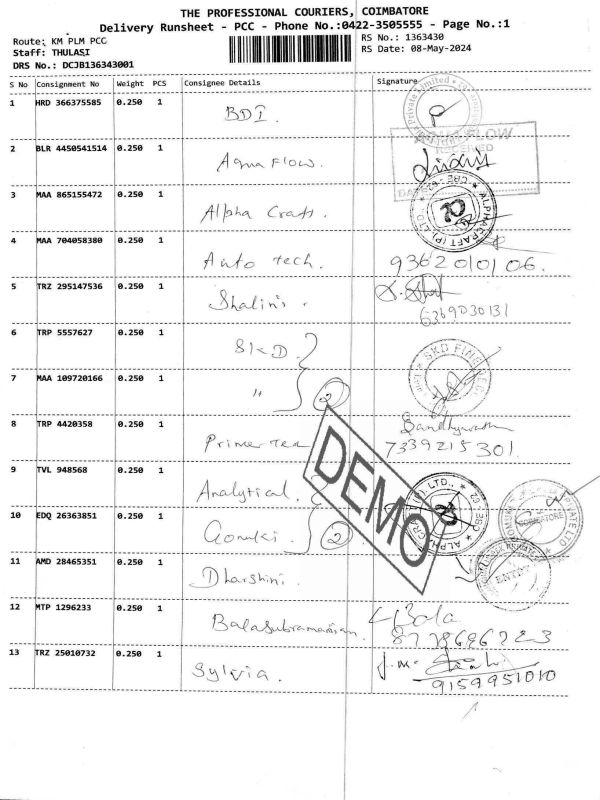 THE PROFESSIONAL COURIERS, COIMBATORE
Delivery Runsheet - PCC - Phone No.:0422-3505555 - Page No.:1
Route: KM PLM PCC
Staff: THULASI
DRS No.: DCJB136343001
RS No.: 1363430
RS Date: 08-May-2024
S No Consignment No Weight PCS Consignee Details Signature
1 HRD 366375585 0.250 1 BDI.
2 BLR 4450541514 0.250 1 Aqua Flow.
RECEIVED
3 MAA 865155472 0.250 1 Alpha Craft.
ALPHACRAFT (P) LTD.
4 MAA 704058380 0.250 1 Auto tech. 9362010106.
5 TRZ 295147536 0.250 1 Shalini.
6369030131
6 TRP 5557627 0.250 1 SKD
7 MAA 109720166 0.250 1 " 2
8 TRP 4420358 0.250 1 Primer Tex
7339215301.
DEMO
9 TVL 948568 0.250 1 Analytical.
10 EDQ 26363851 0.250 1 2
COIMBATORE
11 AMD 28465351 0.250 1 Dharshini.
ENTRY
12 MTP 1296233 0.250 1 Balasubramanian. Bala
13 TRZ 25010732 0.250 1 Sylvia. J.M.
9159951010